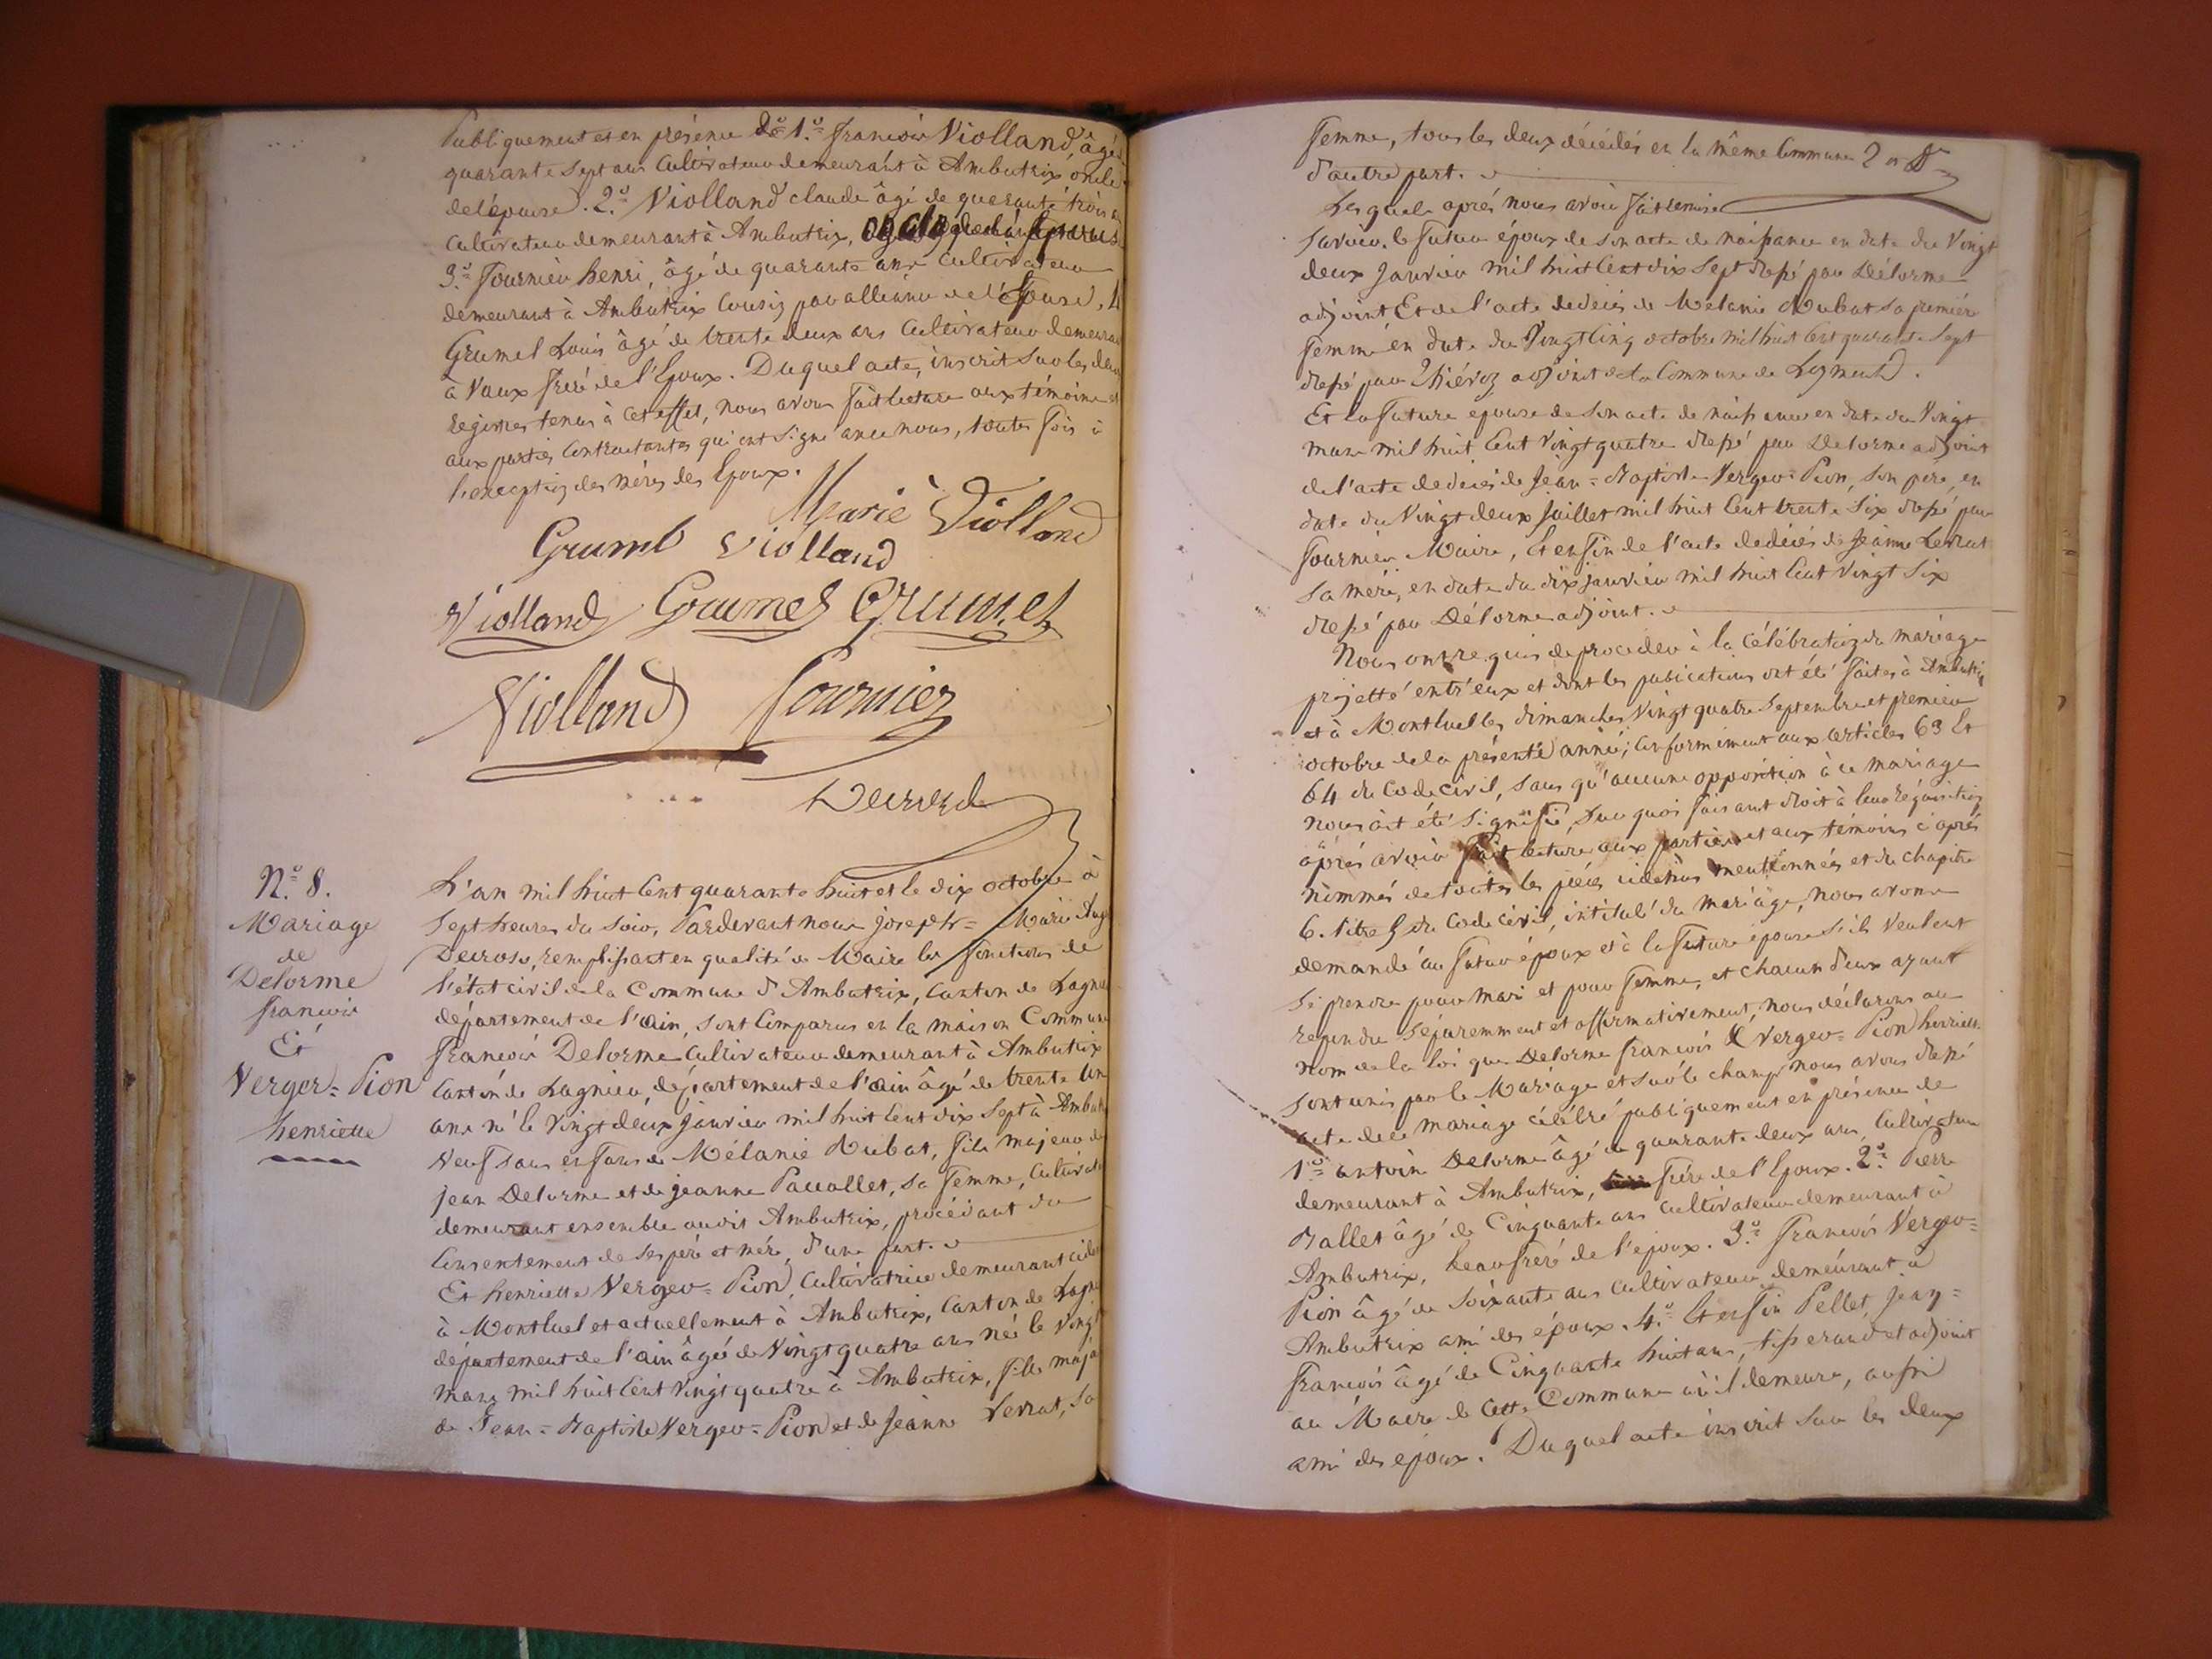 Publiquement et en présence de 1.º francois Violland, âgé de
quarante sept ans Cultivateur demeurant à Ambutrix oncle
de l'épouse. 2.º Violland claude âgé de quarante trois ans
Cultivateur demeurant à Ambutrix,
3.º fournier henri, âgé de quarante ans cultivateur
demeurant à Ambutrix Cousin par alliance de l'Epouse, 4
Grumel Louis âgé de trente deux ans Cultivateur demeurant
à Vaux frère de l'Epoux. Duquel acte, inscrit sur les deux
registres tenus à cet effet, nous avons fait lecture aux témoins et
aux parties Contractantes qui ont signé avec nous, toutes fois à
l'exception des mères des Epoux.
Marie Violland
Grumel Violland
Violland Grumel Grumel
Violland fournier
Decroso
N.º 8.
Mariage
de
Delorme
francois
Et
Verger = Pion
henriette
L'an mil huit Cent quarante huit et le dix octobre à
Sept heures du soir, Pardevant nous joseph = Marie Aug
Decroso, remplissant en qualité de Maire les fonctions de
l'état civil de la Commune d'Ambutrix, Canton de Lagnieu
département de l'ain, sont Comparus en la maison Commune
francois Delorme Cultivateur demeurant à Ambutrix
Canton de Lagnieu, département de l'ain âgé de trente un
ans né le Vingt deux janvier mil huit Cent dix Sept à Ambutrix
Veuf sans enfans de Mélanie Dubat, fils majeur de
jean Delorme et de jeanne Pacallet, sa femme, Cultivateurs
demeurant ensemble audit Ambutrix, procédant du
Consentement de ses père et mère, d'une part.
Et henriette Verger = Pion, Cultivatrice demeurant cidev
à Montluel et actuellement à Ambutrix, Canton de Lagnieu
département de l'ain âgée de Vingt quatre ans née le Vingt
mars mil huit Cent Vingt quatre à Ambutrix, fille maje
de Jean = Baptiste Verger = Pion et de Jeanne Verrat, Sa
femme, tous les deux décédés en la même Commune
d'autre part.
Lesquels après nous avoir fait remise
Savoir, le futur époux de son acte de naissance en date du Vingt
deux Janvier mil huit Cent dix Sept dressé par Délorme
adjoint Et de l'acte de décès de Mélanie Dubat sa première
femme en date du Vingt Cinq octobre mil huit Cent quarante Sept
dressé par Thiévoz adjoint de la Commune de
Et la future épouse de son acte de naissance en date du Vingt
mars mil huit Cent Vingt quatre dressé par Delorme adjoint
de l'acte de décès de Jean = Baptiste Verger = Pion, son père, en
date du Vingt deux juillet mil huit Cent trente Six dressé par
fournier Maire, Et enfin de l'acte de décès de Jeanne Verrat
Sa mère, en date du dix janvier mil huit Cent Vingt Six
dressé par Délorme adjoint.
Nous ont requis de proceder à la célébration du mariage
projetté entr'eux et dont les publications ont été faites à Ambutrix
et à Montluel les dimanches Vingt quatre Septembre et premier
octobre de la présente année; Conformément aux articles 63 Et
64 du Code civil, Sans qu'aucune opposition à ce mariage
nous ait été signifié, Sur quoi faisant droit à leur réquisition
après avoir fait lecture aux parties et aux témoins ci après
nommés de toutes les pièces cidessus mentionnées et du chapitre
6. titre 5 du Code civil, intitulé du mariage, nous avons
demandé au futur époux et à la future épouse s'ils Veulent
Se prendre pour mari et pour femme, et chacun d'eux ayant
repondu Séparemment et affirmativement, nous déclarons au
nom de la loi que Delorme francois & Verger = Pion henriette
sont unis par le Mariage et sur le champ nous avons dressé
acte de ce mariage célébré publiquement en présence de
1.º antoine Delorme âgé de quarante deux ans Cultivateur
demeurant à Ambutrix, frère de l'Epoux. 2.º Pierre
Ballet âgé de Cinquante ans Cultivateur demeurant à
Ambutrix, beaufrère de l'époux. 3.º francois Verger =
Pion âgé de Soixante ans Cultivateur demeurant à
Ambutrix ami des époux. 4.º Et enfin Pellet, jean =
francois âgé de Cinquante huit ans, tisserand et adjoint
au Maire de Cette Commune où il demeure, aussi
ami des époux. Duquel acte inscrit sur les deux